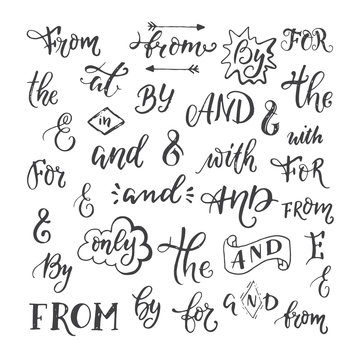 From from By FOR
the at BY AND & the
& in and & with with
For & and AND FOR FROM
& only the AND E
By &
FROM by for aND from